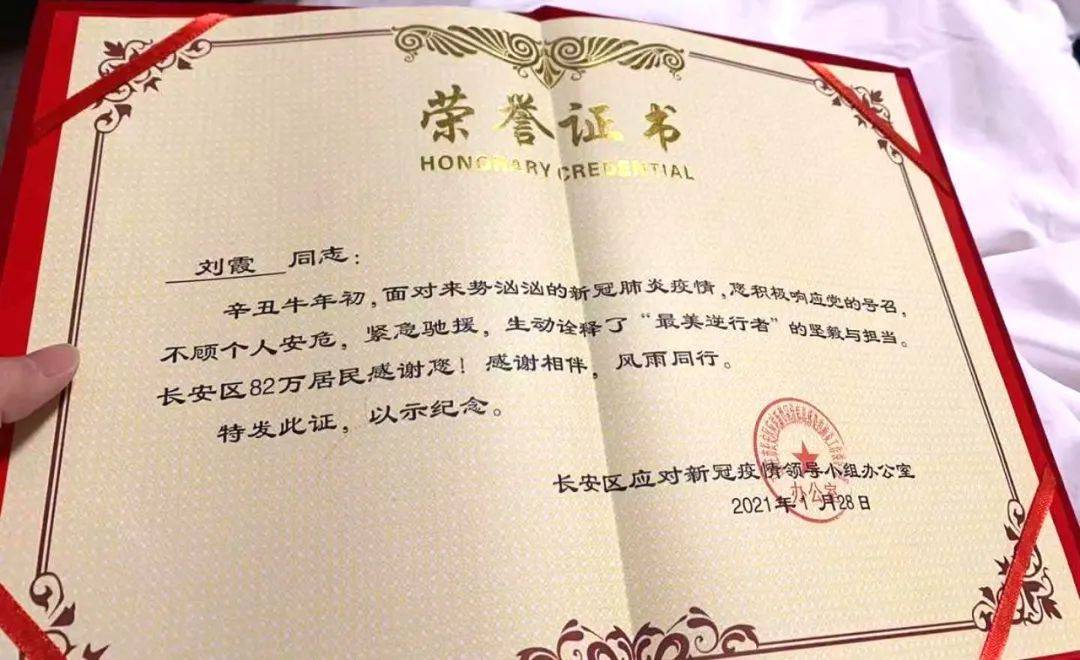 荣誉证书
HONORARY CREDENTIAL
刘霞 同志：
辛丑牛年初，面对来势汹汹的新冠肺炎疫情，您积极响应党的号召，
不顾个人安危，紧急驰援，生动诠释了“最美逆行者”的坚毅与担当。
长安区82万居民感谢您！感谢相伴，风雨同行。
特发此证，以示纪念。
长安区应对新冠疫情领导小组办公室
2021年1月28日
办公室